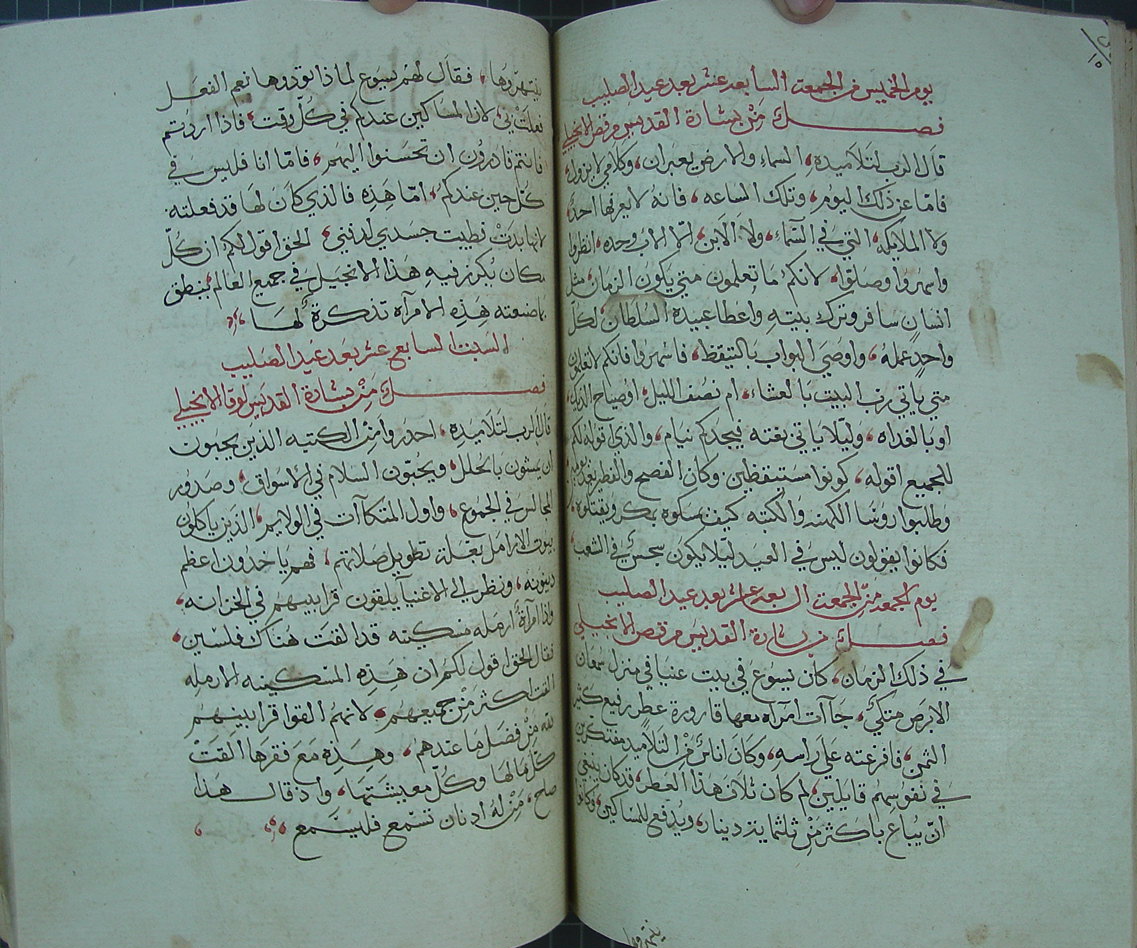 يوم الخميس من الجمعة السابعه عشر بعد عيد الصليب
فصل من بشارة القديس مرقص الانجيلي
قال الرب لتلاميذه السماء والارض يعبران وكلامي لا يزول
فاما عن ذلك اليوم وتلك الساعه فانه لا يعرفها احد
ولا الملايكه التي في السماء ولا الابن الا الاب وحده انظروا
واسهروا وصلوا لانكم ما تعلمون متى يكون الزمان مثل
انسان سافر وترك بيته واعطا عبيده السلطان لكل
واحد عمله واوصى البواب بالتيقظ فاسهروا فانكم لا تعلمون
متى ياتي رب البيت بالعشاء ام نصف الليل او صياح الديك
او بالغداه وليلا ياتي بغته فيجدكم نيام والذي اقوله لكم
للجميع اقوله كونوا مستيقظين وكان الفصح والفطير بعد يومين
وطلبوا روسا الكهنه والكتبه كيف يمسكوه بمكر ويقتلوه
فكانوا يقولون ليس في العيد ليلا يكون سجس في الشعب
يوم الجمعه من الجمعة السابعه عشر بعد عيد الصليب
فصل من بشارة القديس مرقص الانجيلي
في ذلك الزمان كان يسوع في بيت عنيا في منزل سمعان
الابرص متكي جاآت امراه معها قارورة عطر رفيع كثير
الثمن فافرغته على راسه وكان اناس من التلاميد مفتكرين
في نفوسهم قايلين لم كان تلاف هذا العطر قد كان ينبغي
ان يباع باكثر من ثلثماية دينار ويدفع للمساكين وكانوا
ينتهروها
ينتهروها فقال لهم يسوع لماذا توذوها نعم الفعل
فعلت بي لان المساكين عندكم في كل وقت فاذا اردتم
فانتم قادرون ان تحسنوا اليهم فاما انا فليس في
كل حين عندكم اما هذه فالذي كان لها قد فعلته
لانها بدت فطيبت جسدي لدفني الحق اقول لكم ان كل
مكان يكرز فيه هذا الانجيل في جميع العالم ينطق
بما صنعته هذه الامراه تذكرة لها
السبت السابع عشر بعد عيد الصليب
فصل من بشارة القديس لوقا الانجيلي
قال الرب لتلاميذه احدروا من الكتبه الذين يحبون
ان يمشون بالحلل ويحبون السلام في الاسواق وصدور
المجالس في الجموع واول المتكآت في الولايم الذين ياكلون
بيوت الارامل بعلة تطويل صلاتهم فهم ياخدون اعظم
دينونه ونظر الى الاغنيا يلقون قرابينهم في الخزانه
واذا امراة ارمله مسكينه قد القت هناك فلسين
فقال الحق اقول لكم ان هذه المسكينه الارمله
القت اكثر من جميعهم لانهم القوا قرابينهم
لله من فضل ما عندهم وهذه مع فقرها القت
كل مالها وكل معيشتها واذ قال هذا
صاح من له ادنان تسمع فليسمع